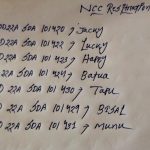 NCC Registration
DD22A SDA 101420 → Jacky
DD22A SDA 101422 → Lucky
DD22A SDA 101423 → Happy
DD22A SDA 101424 → Badua
22A SDA 101430 → Tapu
22 SDA 101429 → BISAL
22 SDA 101431 → munu